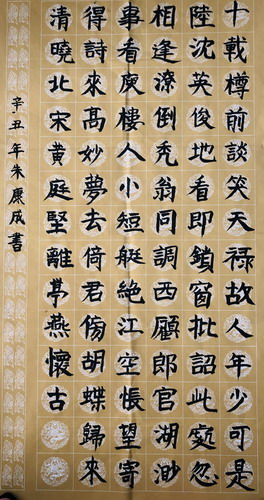 十載樽前談笑天祿故人年少可是
陸沈英俊地看即鎖窗批詔此處忽
相逢潦倒禿翁同調西顧郎官湖渺
事看庾樓人小短艇絕江空悵望寄
得詩來高妙夢去倚君傍胡蝶歸來
清曉北宋黃庭堅離亭燕懷古
辛丑年朱康成書